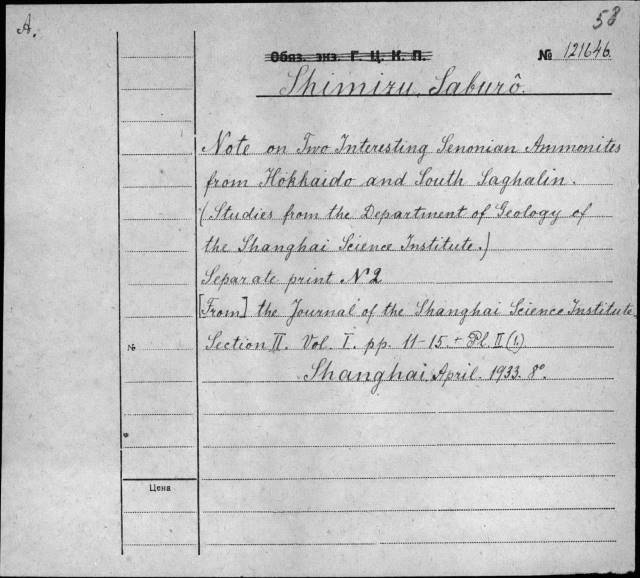 A.
53
Обяз. экз. Г. Ц. К. П.
№ 121646
Shimizu, Saburô.
Note on Two Interesting Senonian Ammonites
from Hokkaido and South Saghalin.
(Studies from the Department of Geology of
the Shanghai Science Institute.)
Separate print N 2
[From] the Journal of the Shanghai Science Institute
Section II. Vol. I. pp. 11-15 + Pl. II (1)
Shanghai, April. 1933. 8°.
№
Цена